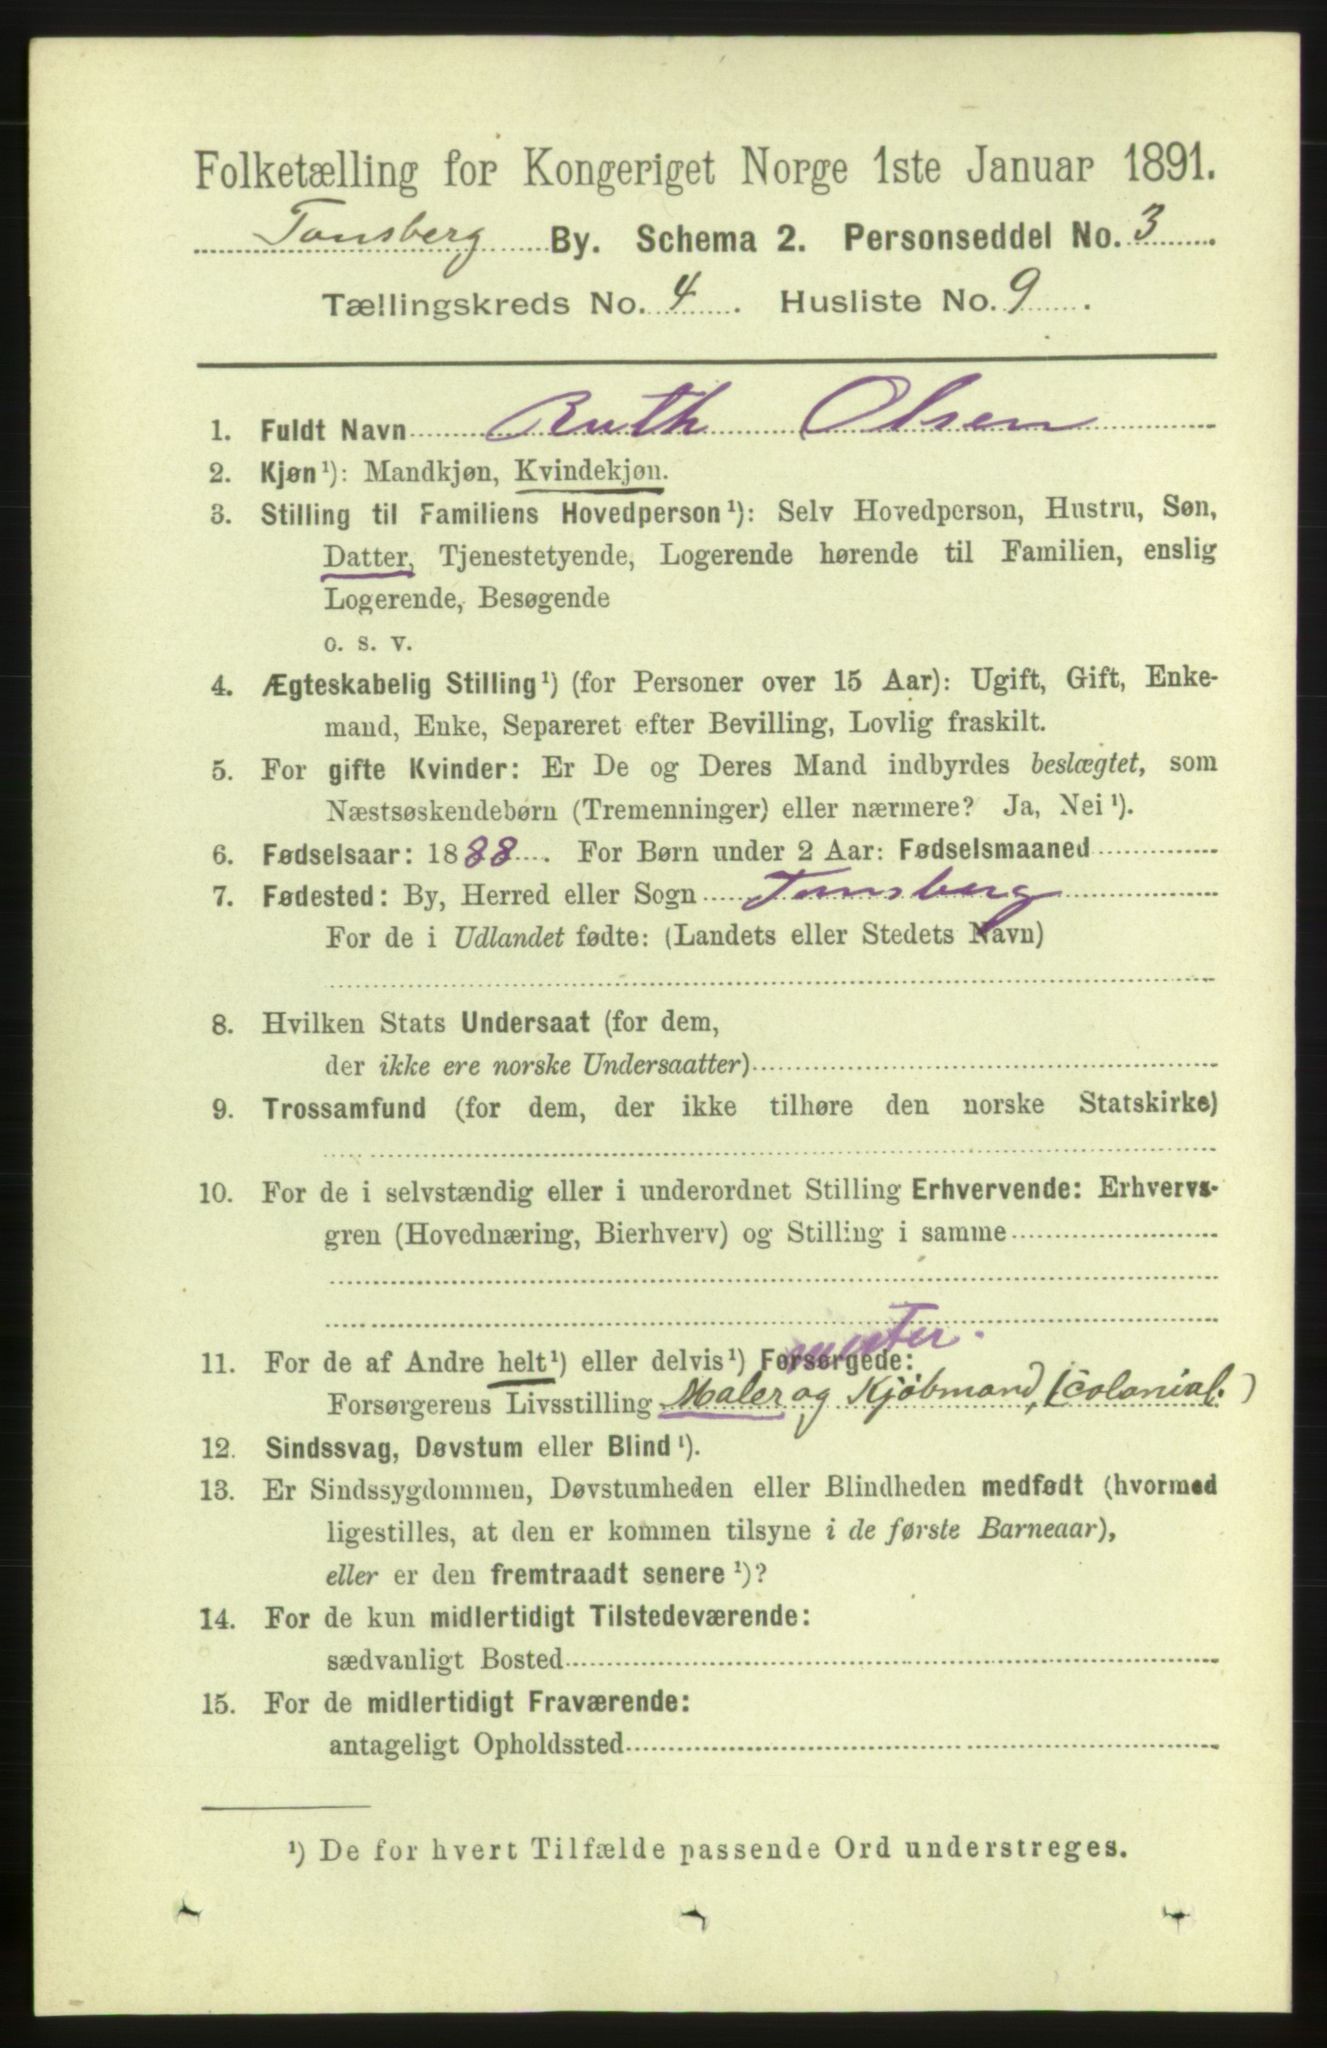 Folketælling for Kongeriget Norge 1ste Januar 1891.
Tønsberg By. Schema 2. Personseddel No. 3
Tællingskreds No. 4. Husliste No. 9.
1. Fuldt Navn Ruth Olsen
2. Kjøn¹): Mandkjøn, Kvindekjøn.
3. Stilling til Familiens Hovedperson¹): Selv Hovedperson, Hustru, Søn,
Datter, Tjenestetyende, Logerende hørende til Familien, enslig
Logerende, Besøgende
o. s. v.
4. Ægteskabelig Stilling¹) (for Personer over 15 Aar): Ugift, Gift, Enke-
mand, Enke, Separeret efter Bevilling, Lovlig fraskilt.
5. For gifte Kvinder: Er De og Deres Mand indbyrdes beslægtet, som
Næstsøskendebørn (Tremenninger) eller nærmere? Ja, Nei¹).
6. Fødselsaar: 1888. For Børn under 2 Aar: Fødselsmaaned
7. Fødested: By, Herred eller Sogn Tønsberg
For de i Udlandet fødte: (Landets eller Stedets Navn)
8. Hvilken Stats Undersaat (for dem,
der ikke ere norske Undersaatter)
9. Trossamfund (for dem, der ikke tilhøre den norske Statskirke)
10. For de i selvstændig eller i underordnet Stilling Erhvervende: Erhvervs-
gren (Hovednæring, Bierhverv) og Stilling i samme
mester.
11. For de af Andre helt¹) eller delvis¹) Forsørgede:
Forsørgerens Livsstilling Maler og Kjøbmand, (colonial.)
12. Sindssvag, Døvstum eller Blind¹).
13. Er Sindssygdommen, Døvstumheden eller Blindheden medfødt (hvormed
ligestilles, at den er kommen tilsyne i de første Barneaar),
eller er den fremtraadt senere¹)?
14. For de kun midlertidigt Tilstedeværende:
sædvanligt Bosted
15. For de midlertidigt Fraværende:
antageligt Opholdssted
¹) De for hvert Tilfælde passende Ord understreges.